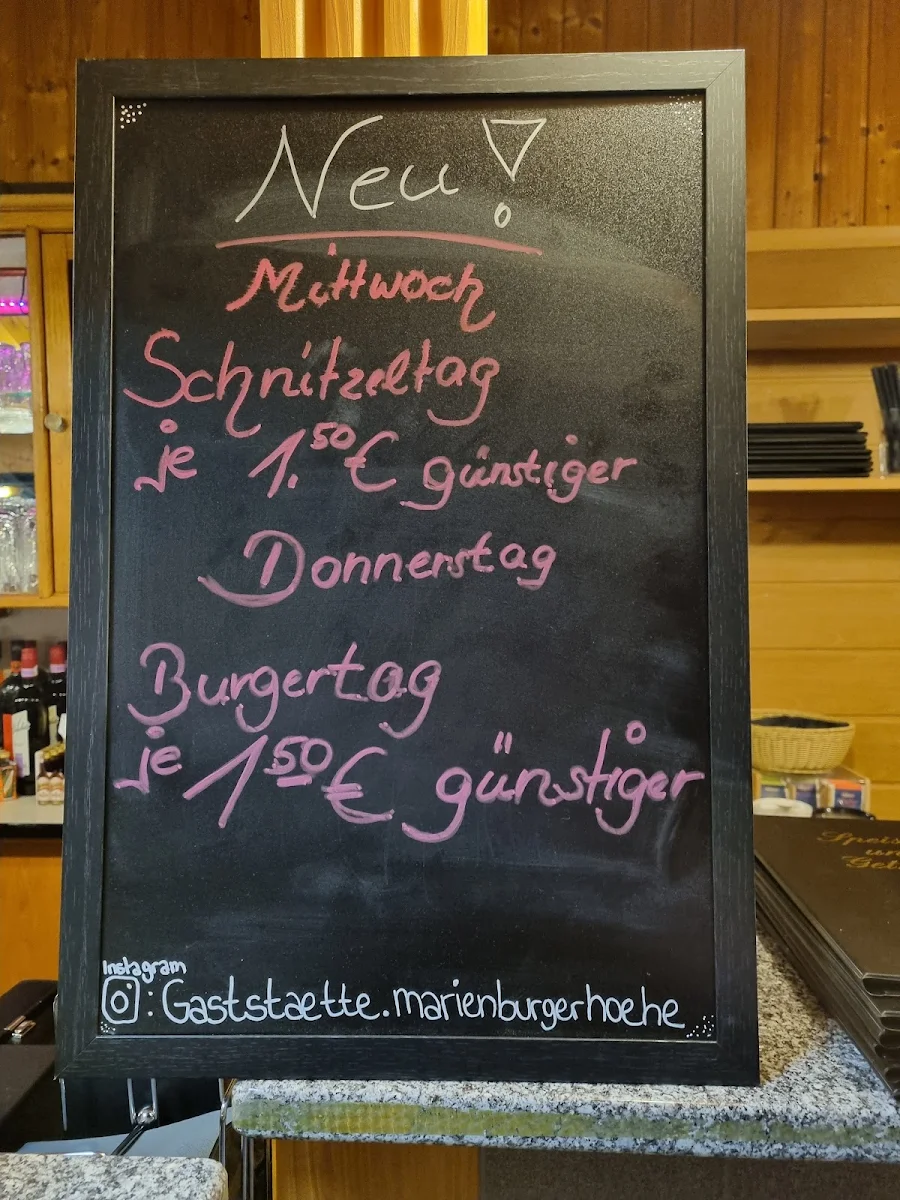 Neu!
Mittwoch
Schnitzeltag
je 1.50€ günstiger
Donnerstag
Burgertag
je 1 50€ günstiger
Instagram
: Gaststaette.marienburgerhoehe
Speis
un
Get